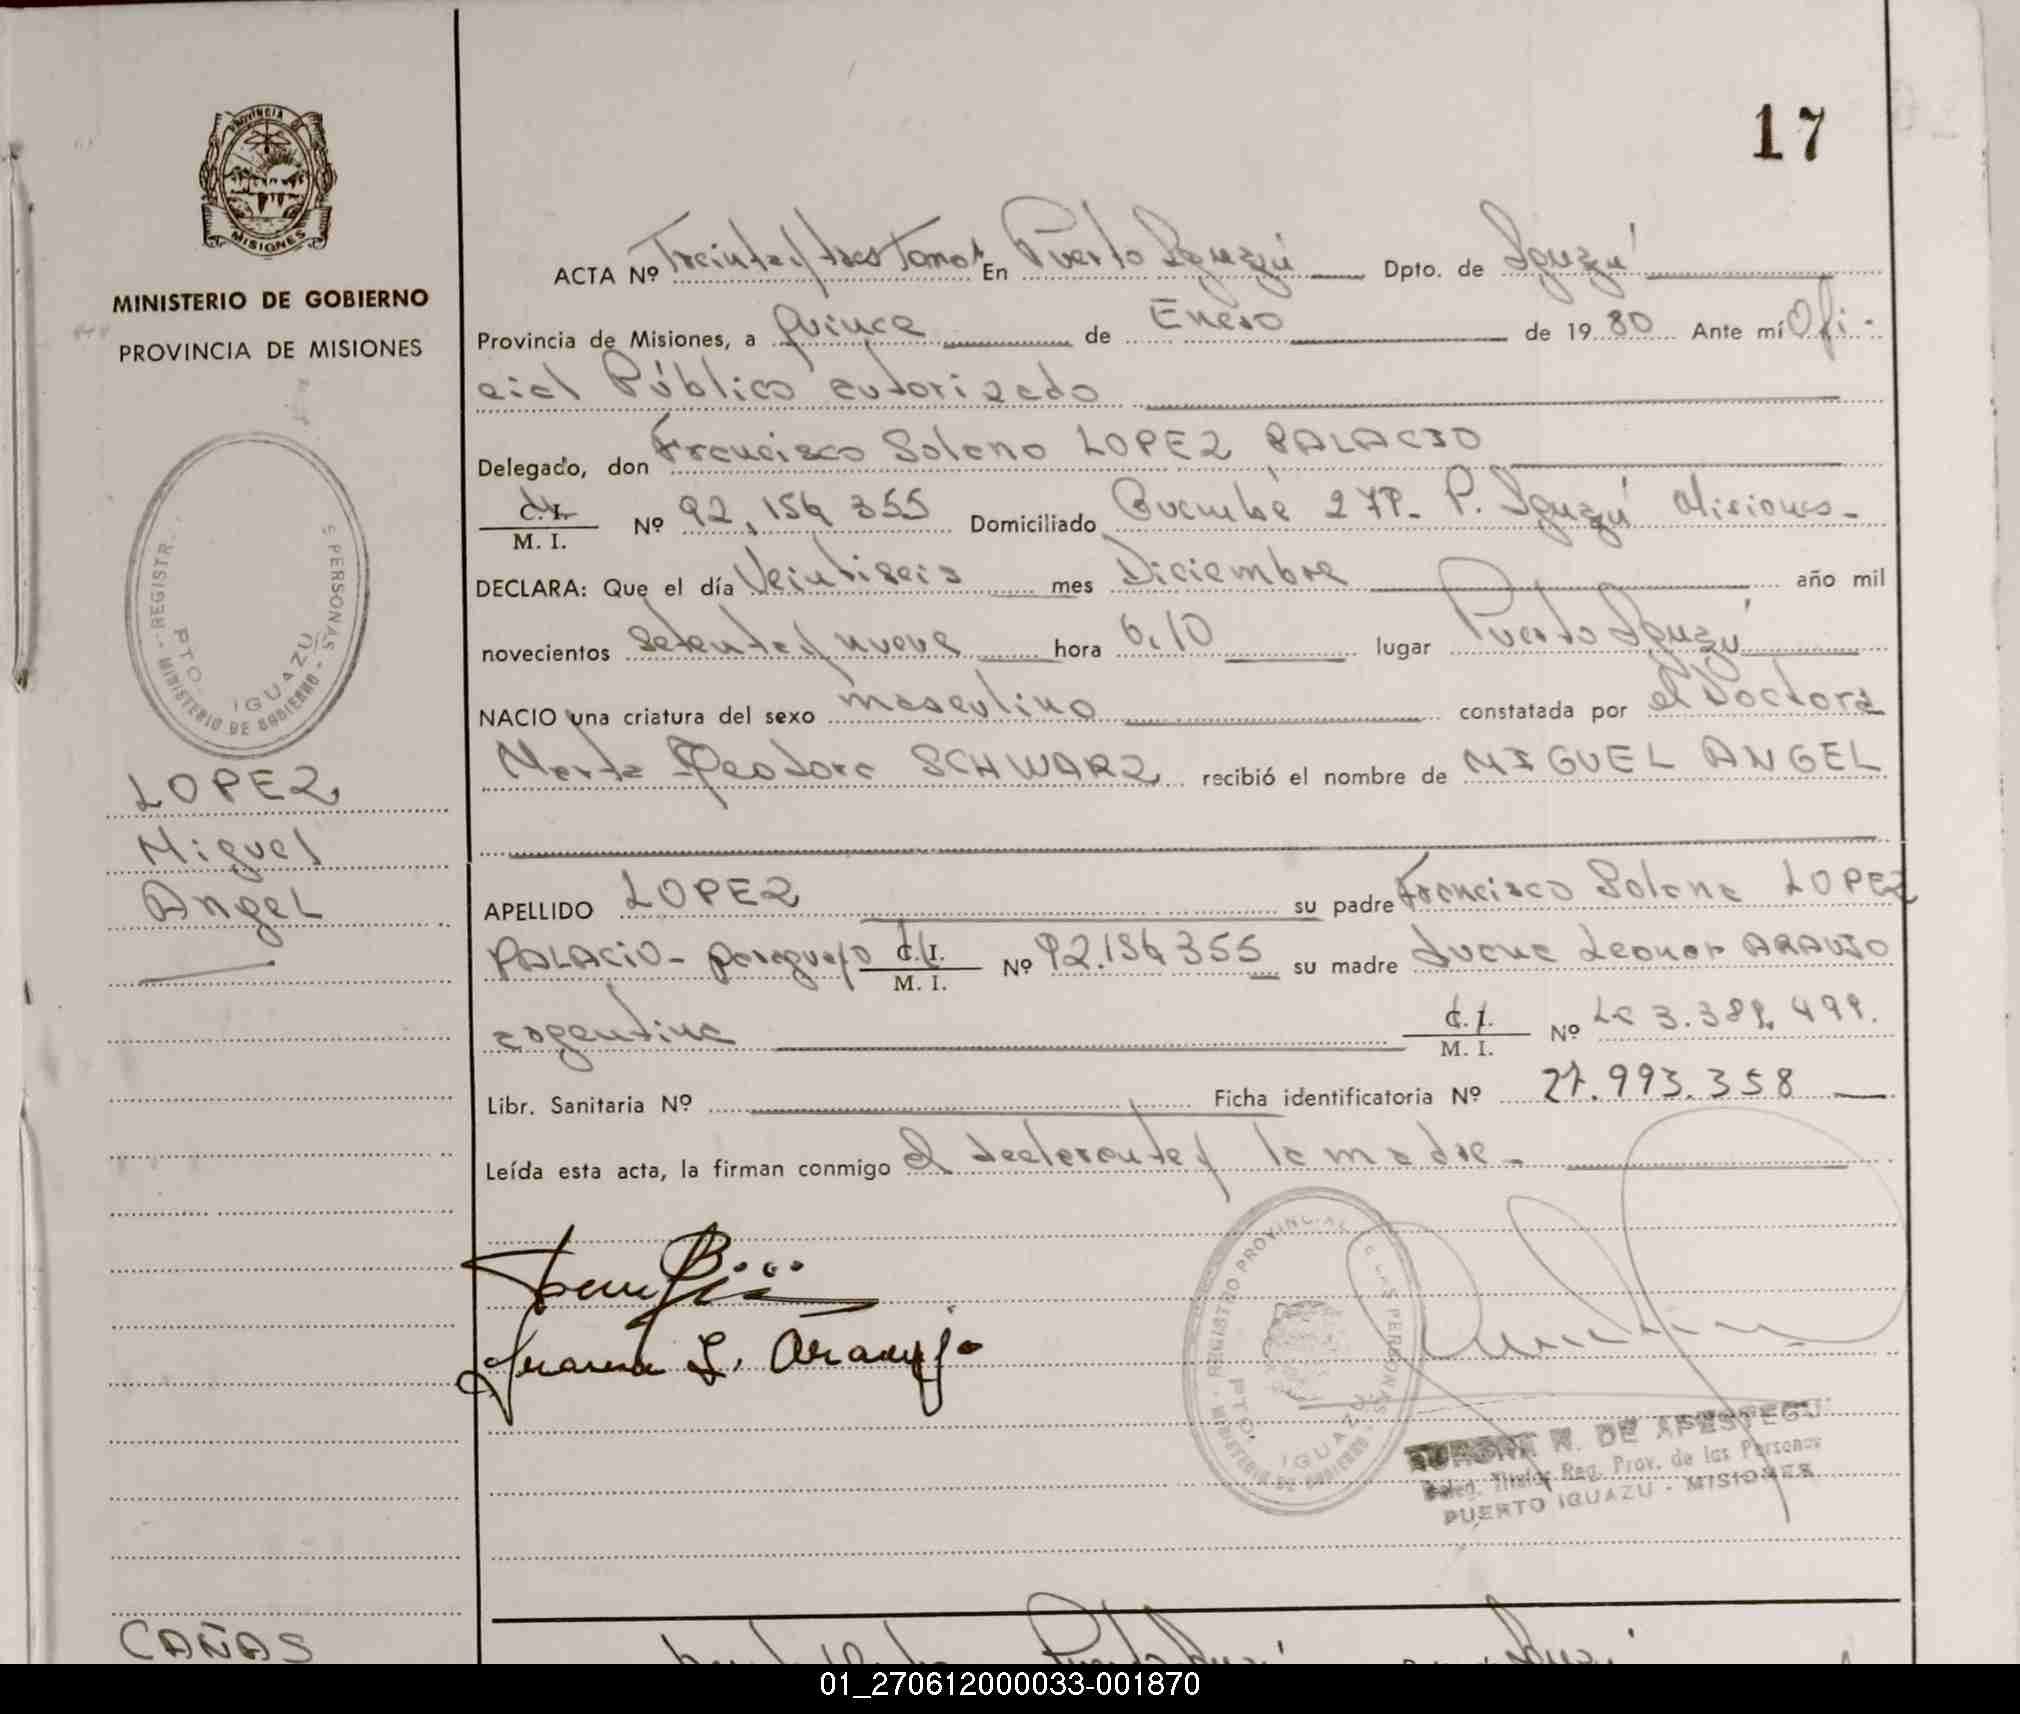 17
PROVINCIA DE
MISIONES
MINISTERIO DE GOBIERNO
PROVINCIA DE MISIONES
REGISTR
PERSONAS
PTO. IGUAZU
MINISTERIO DE GOBIERNO
LOPEZ
Miguel
Angel
CAÑAS
ACTA Nº Treinta y tres Tomo I En Puerto Iguazú Dpto. de Iguazú
Provincia de Misiones, a Quince de Enero de 1980 Ante mí Ofi-
cial Público autorizado
Delegado, don Francisco Solano LOPEZ PALACIO
C. I.
M. I. Nº 92.154 355 Domiciliado 279- P. Iguazú Misiones-
DECLARA: Que el día Veintiseis mes Diciembre año mil
novecientos setenta y nueve hora 6,10 lugar Puerto Iguazú
NACIO una criatura del sexo masculino constatada por el Doctora
Marta Teodora SCHWARZ recibió el nombre de MIGUEL ANGEL
APELLIDO LOPEZ su padre Francisco Solano LOPEZ
PALACIO- paraguayo C. I.
M. I. Nº 92.154 355 su madre Juana Leonor ARAUJO
argentina C. I.
M. I. Nº LC 3.389.499.
Libr. Sanitaria Nº Ficha identificatoria Nº 27.993.358
Leída esta acta, la firman conmigo el declarante y la madre-
Juana L. Araujo
REGISTRO PROVINCIAL DE LAS PERSONAS
PTO. IGUAZU
MINISTERIO DE GOBIERNO
N. DE APESTEGUI
Deleg. Titular Reg. Prov. de las Personas
PUERTO IGUAZU - MISIONES
01_270612000033-001870